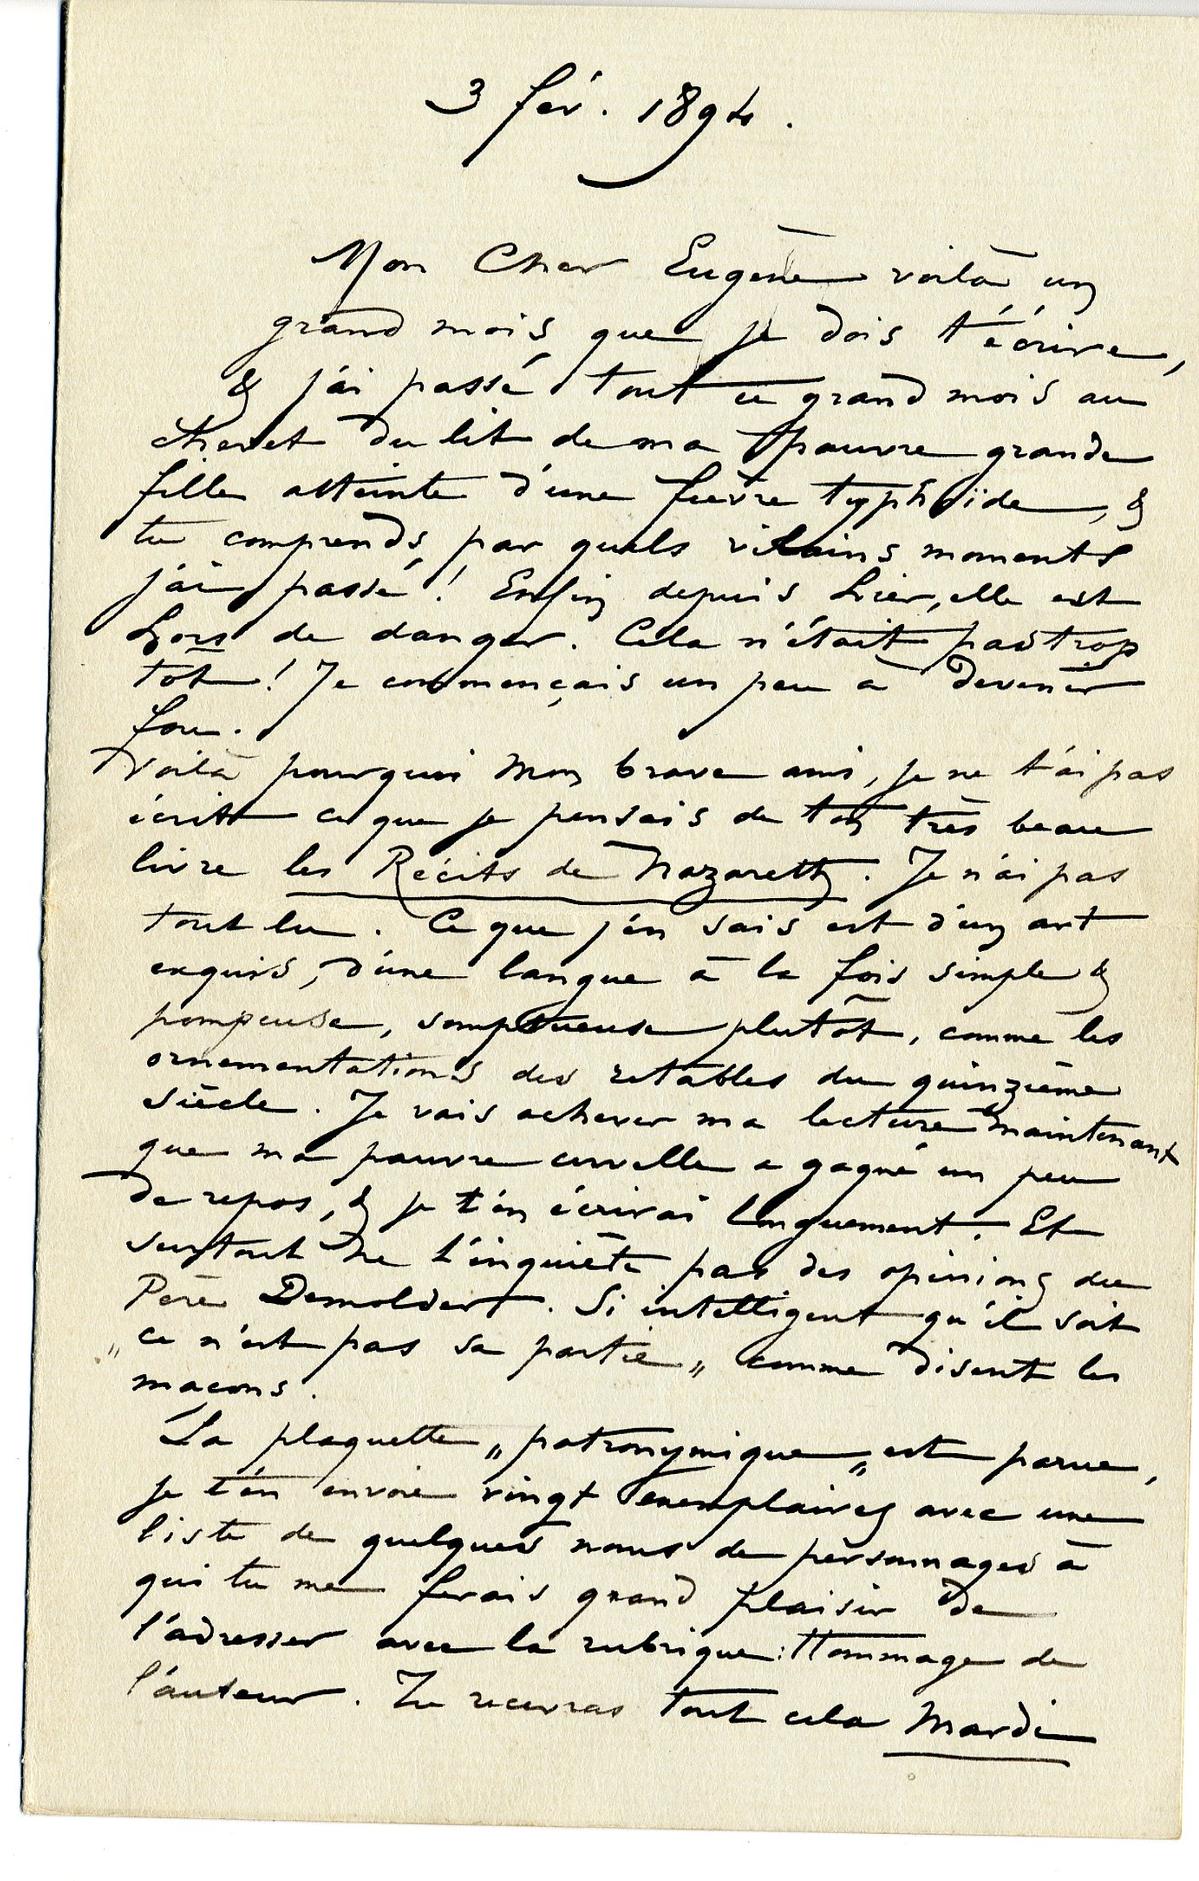 3 fév. 1894.
Mon Cher Eugène voilà un
grand mois que je dois t'écrire,
& j'ai passé tout ce grand mois au
chevet du lit de ma pauvre grande
fille atteinte d'une fièvre typhoïde, &
tu comprends par quels vilains moments
j'ai passé ! Enfin depuis hier, elle est
hors de danger. Cela n'était pas trop
tôt ! Je commençais un peu à devenir
fou.
Voilà pourquoi mon brave ami, je ne t'ai pas
écrit ce que je pensais de ton très beau
livre les Récits de Nazareth. Je n'ai pas
tout lu. Ce que j'en sais est d'un art
exquis, d'une langue à la fois simple &
pompeuse, somptueuse plutôt, comme les
ornementations des retables du quinzième
siècle. Je vais achever ma lecture maintenant
que ma pauvre cervelle a gagné un peu
de repos, & je t'en écrirai longuement. Et
surtout ne t'inquiète pas des opinions du
Père Demolder. Si intelligent qu'il soit
„ce n'est pas sa partie„ comme disent les
maçons.
La plaquette „patronymique„ est parue,
je t'en envoie vingt exemplaires avec une
liste de quelques noms de personnages à
qui tu me ferais grand plaisir de
l'adresser avec la rubrique : Hommage de
l'auteur. Tu recevras tout cela Mardi